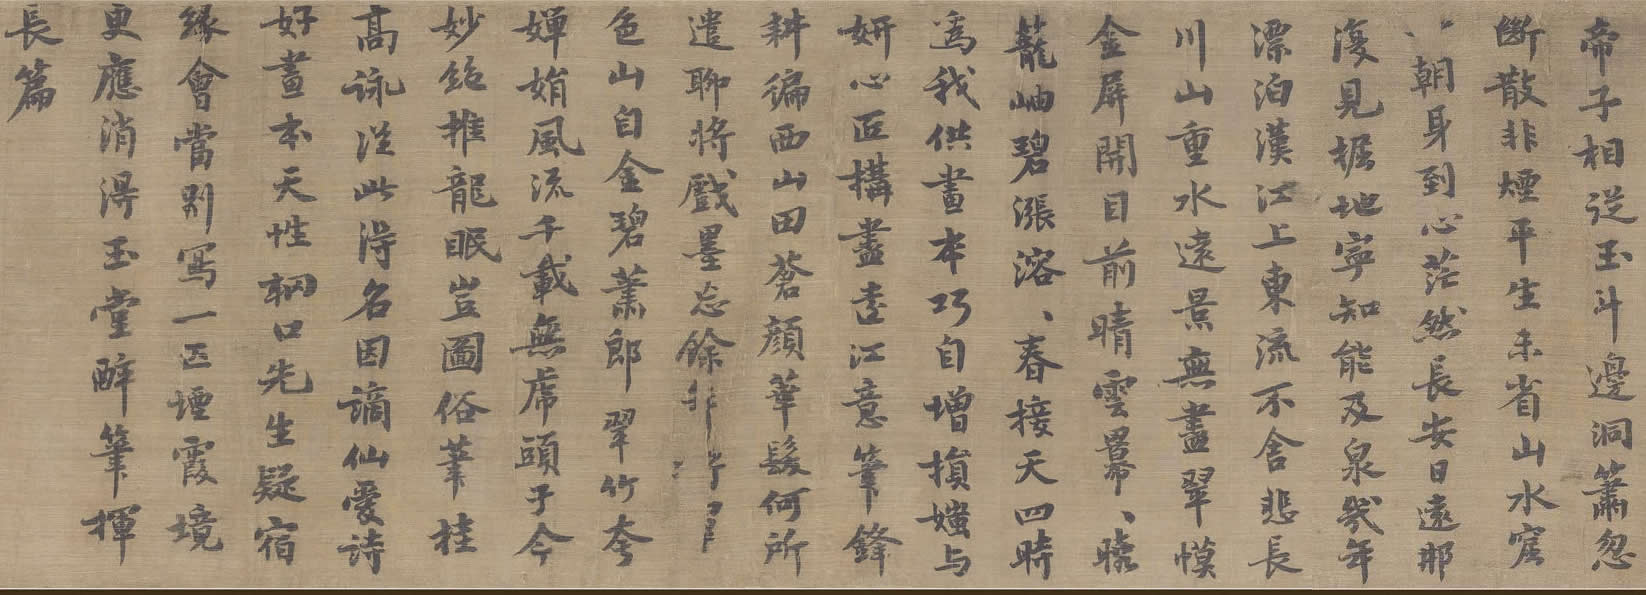 帝子相從玉斗邊洞簫忽
斷散非煙平生未省山水窟
朝身到心茫然長安日遠那
復見掘地寧知能及泉幾年
漂泊漢江上東流不舍悲長
川山重水遠景無盡翠幙
金屏開目前晴雲羃、曉
籠岫碧漲溶、春接天四時
為我供畫本巧自增損媸与
妍心匠構盡遠江意筆鋒
耕徧西山田蒼顏華髮何所
遣聊將戲墨忘餘
色山自金碧蕭郎翠竹夸
嬋娟風流千載無虎頭于今
妙絕推龍眠豈圖俗筆挂
高詠從此得名因謫仙愛詩
好畫本天性輞口先生疑宿
緣會當別寫一匹煙霞境
更應消得玉堂醉筆揮
長篇